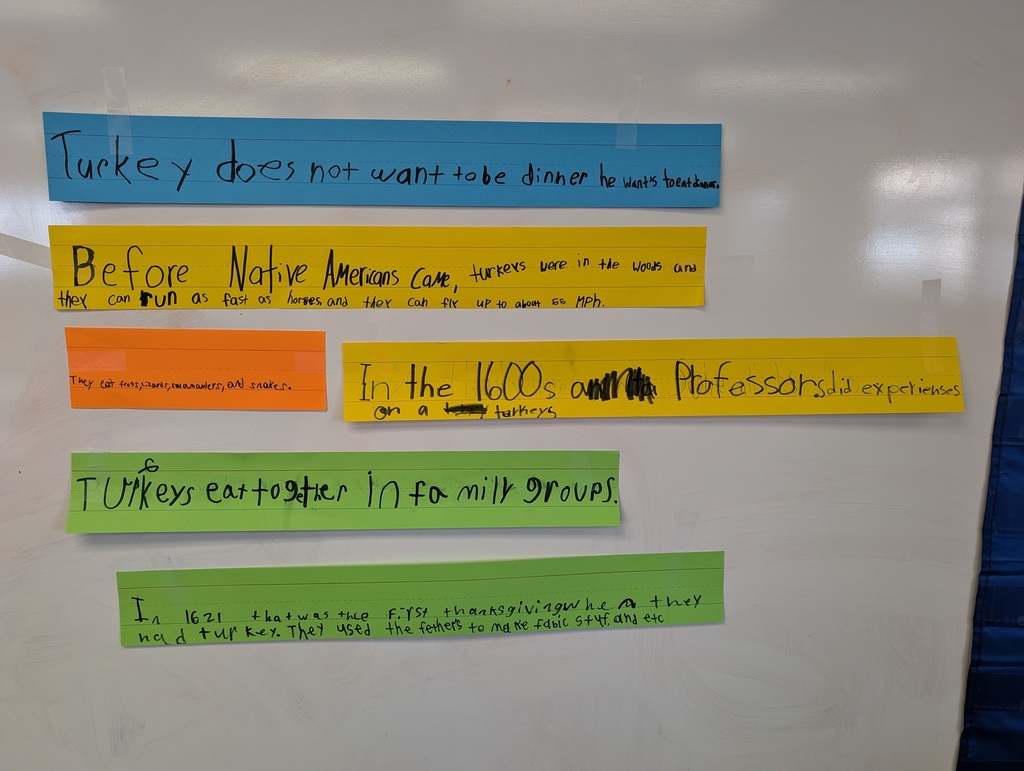 Turkey does not want to be dinner he wants to eat dinner.
Before Native Americans Came, turkeys were in the woods and
they can run as fast as horses, and they can fly up to about 55 MPh.
They eat frogs, lizards, salamanders, and snakes.
In the 1600s Professors did experienses
on a turkeys
Turkeys eat together in family groups.
In 1621 that was the first thanksgiving when they
had turkey. They used the fethers to make fabic stuf, and etc